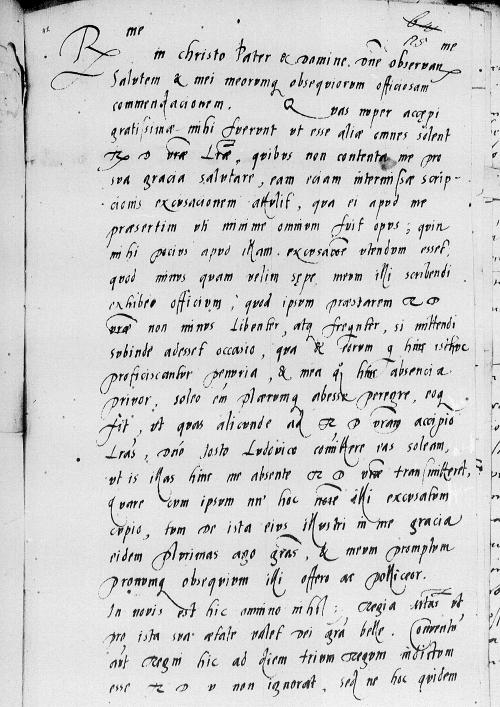 Rme
in christo Pater & Domine. Dne observanme
Salutem & mei meorumq obsequiorum officiosam
commendacionem. Quas nuper accepi
gratissimae mihi fuerunt ut esse aliae omnes solent
R D vrae Lrae, quibus non contenta me pro
sua gracia salutare, eam eciam intermissae scrip-
cionis excusacionem attulit, qua ei apud me
praesertim uti minime omnium fuit opus; quin
mihi pocius apud illam excusacoe utendum esset,
quod minus quam velim sepe meum illi scribendi
exhibeo officium; quod ipsum praestarem R D
vrae non minus libenter, atq freqnter, si mittendi
subinde adesset occasio, qua & eorum q hinc isthuc
proficiscantur penuria, & mea qq hinc absencia
privor, soleo em plerumq abesse peregre, eoq
fit, ut quas alicunde ad R D vram accipio
Lras, dno Iosto Ludovico comittere eas soleam,
ut is illas hinc me absente R D vrae transmitteret,
quare cum ipsum nn hoc noie illi excusatum
cupio, tum de ista eius illustri in me gracia
eidem plurimas ago gras, & meum promptum
pronumq obsequium illi offero ac polliceor.
In novis est hic omnino nihil: Regia mtas ut
pro ista sua aetate valet dei gra belle. Conventu
aut Regni hic ad diem trium Regum indictum
esse R D v non ignorat, sed ne hoc quidem